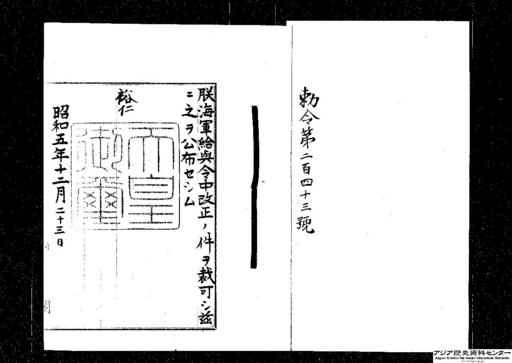 勅令第二百四十三號
朕海軍給與令中改正ノ件ヲ裁可シ茲
ニ之ヲ公布セシム
裕仁
天皇
御璽
昭和五年十二月二十三日
アジア歴史資料センター
Japan Center for Asian Historical Records